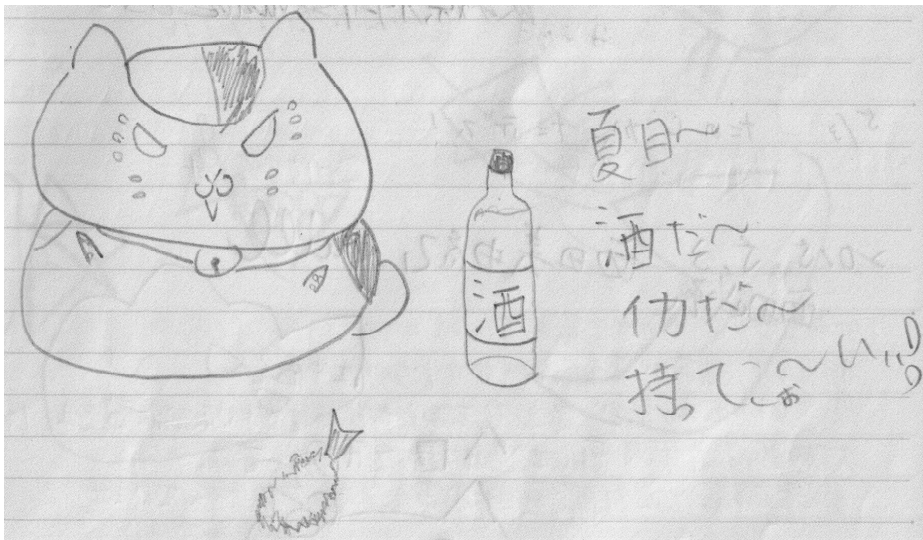 酒
夏目〜
酒だ〜
イカだ〜
持ってこぉ〜い!!